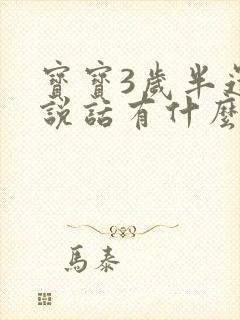 寶寶3歲半
說話有什麼
馬泰